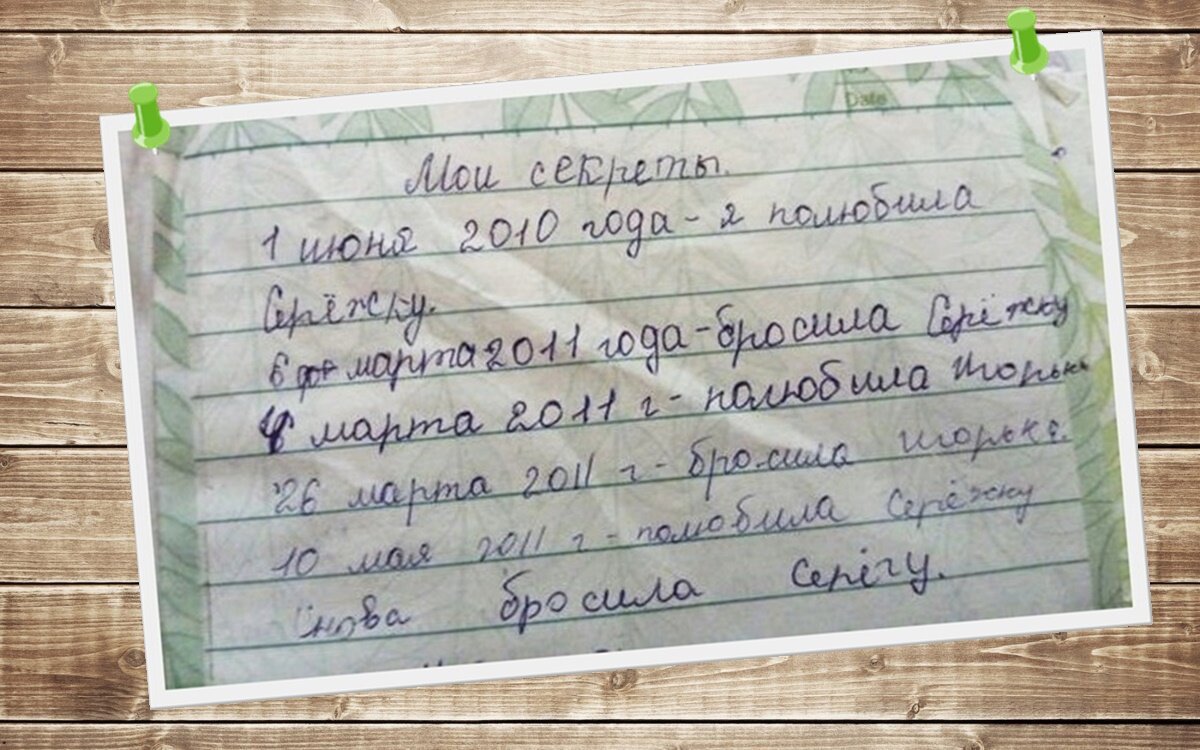 Date
Мои секреты.
1 июня 2010 года - я полюбила
Серёжку.
6 марта 2011 года - бросила Серёжку
марта 2011 г - полюбила Игорька
26 марта 2011 г - бросила Игорька.
10 мая 2011 г - полюбила Серёжку
Снова бросила Серёгу.